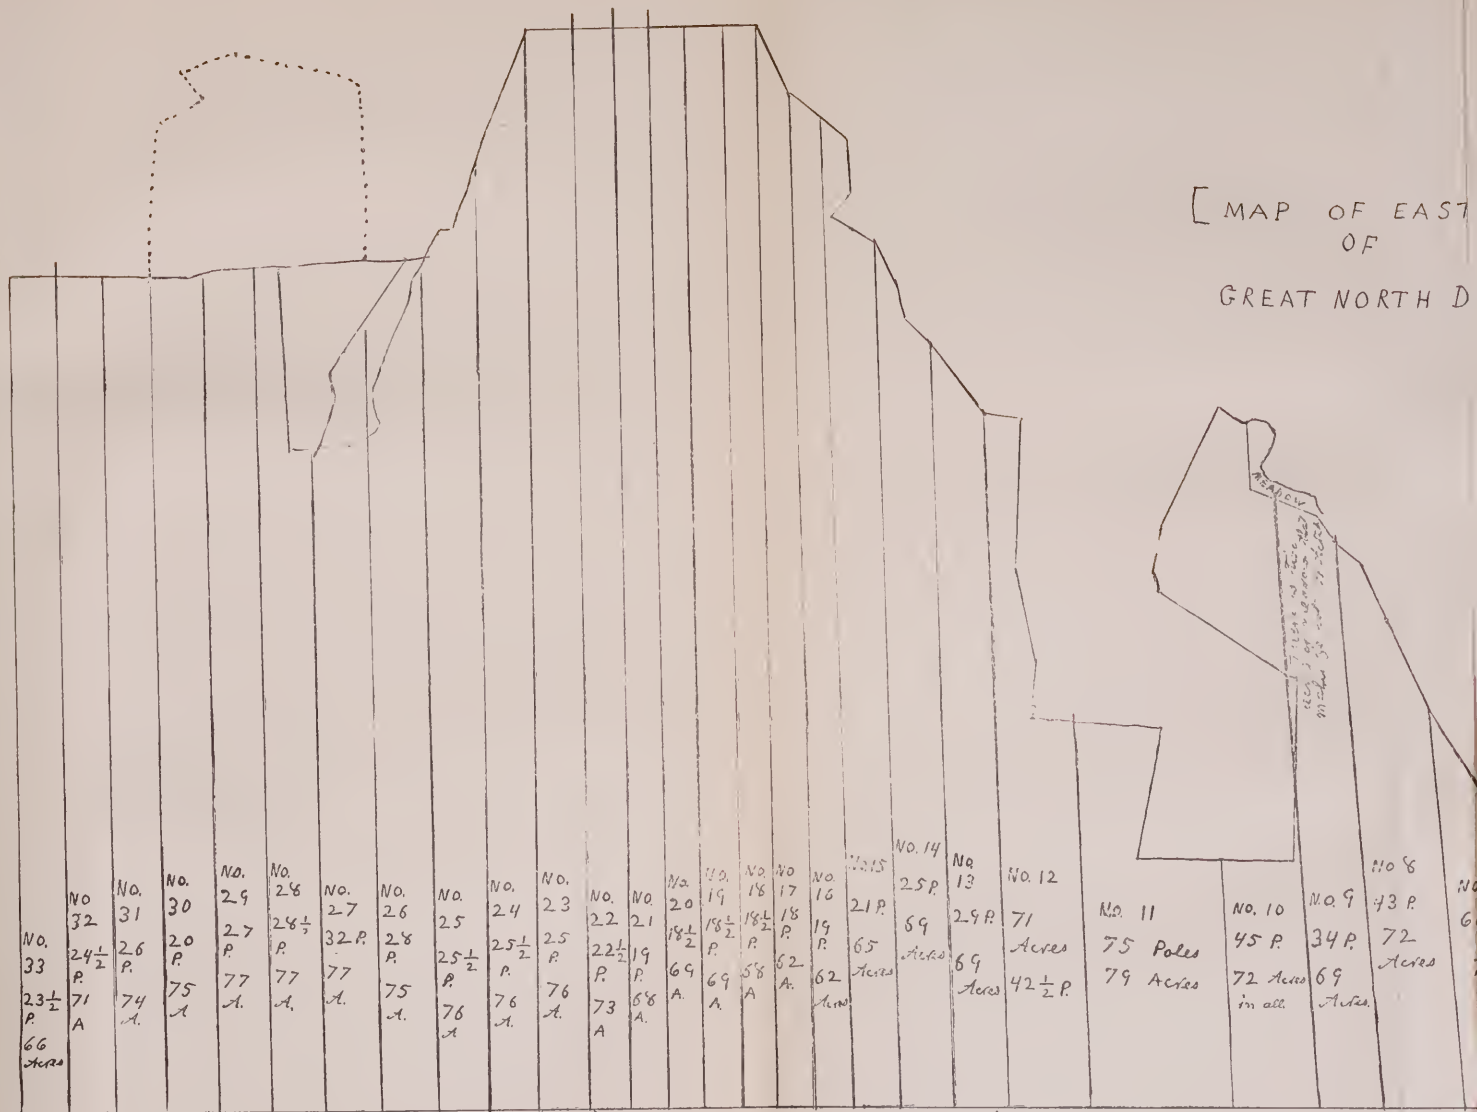 [ MAP OF EAST
OF
GREAT NORTH D
MEADOW
NO.
33
23 1/2
P.
66
Acres
NO
32
24 1/2
P.
71
A
NO.
31
26
P.
74
A.
NO.
30
20
P.
75
A
NO.
29
27
P.
77
A.
NO.
28
28 1/2
P.
77
A.
NO.
27
32 P.
77
A.
NO.
26
28
P.
75
A.
NO.
25
25 1/2
P.
76
A
NO.
24
25 1/2
P.
76
A.
NO.
23
25
P.
76
A.
NO.
22
22 1/2
P.
73
A
NO.
21
19
P.
68
A.
NO.
20
18 1/2
P.
69
A.
NO.
19
18 1/2
P.
69
A.
NO.
18
18 1/2
P.
58
A
NO
17
18
P.
62
A.
NO.
16
19
P.
62
Acres
NO. 15
21 P.
65
Acres
NO. 14
25 P.
69
Acres
NO.
13
29 P.
69
Acres
NO. 12
71
Acres
42 1/2 P.
NO. 11
75 Poles
79 Acres
NO. 10
45 P.
72 Acres
in all
NO. 9
34 P.
69
Acres.
NO 8
43 P.
72
Acres